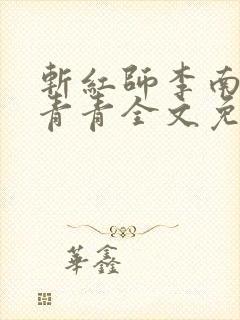 斬紅師李南
青青全文免
華鑫